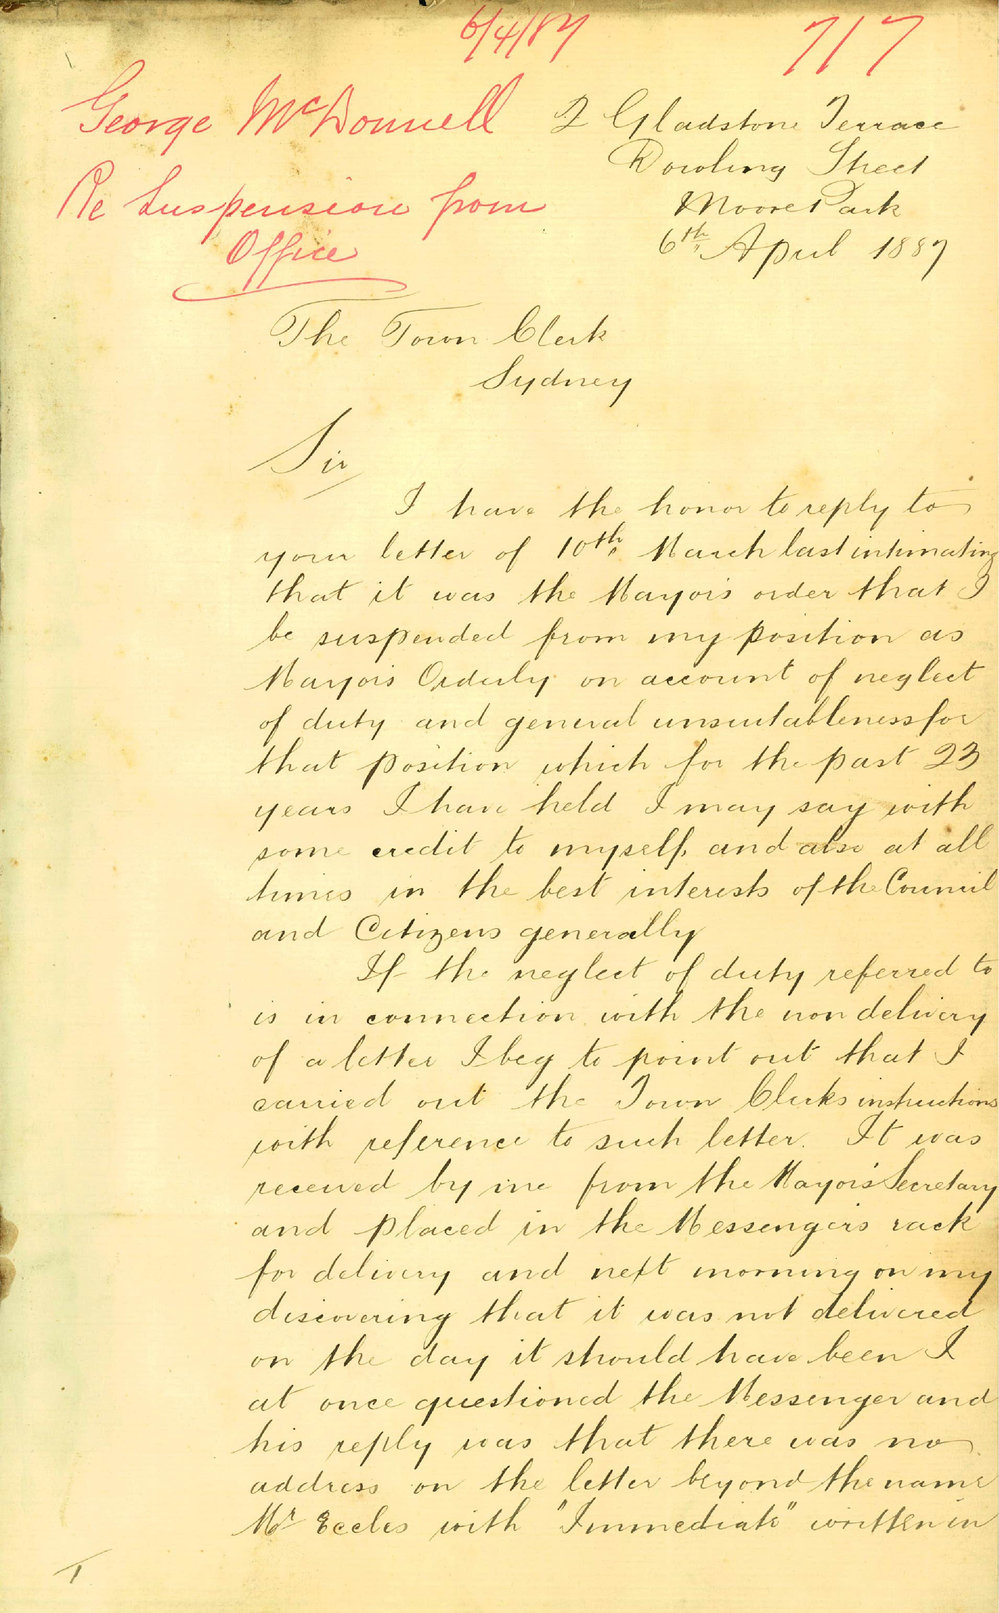 6/4/87
717
George McDonnell
Re Suspension from
Office
2 Gladstone Terrace
Dowling Street
Moore Park
6th April 1887
The Town Clerk
Sydney
Sir
I have the honor to reply to
your letter of 10th March last intimating
that it was the Mayors order that I
be suspended from my position as
Mayors Orderly on account of neglect
of duty and general unsuitableness for
that position which for the past 23
years I have held I may say with
some credit to myself, and also at all
times in the best interests of the Council
and Citizens generally
If the neglect of duty referred to
is in connection with the non delivery
of a letter I beg to point out that I
carried out the Town Clerks instructions
with reference to such letter. It was
received by me from the Mayor's Secretary
and placed in the Messengers rack
for delivery and next morning on my
discovering that it was not delivered
on the day it should have been I
at once questioned the Messenger and
his reply was that there was no
address on the letter beyond the name
Mr Eccles with "Immediate" written in